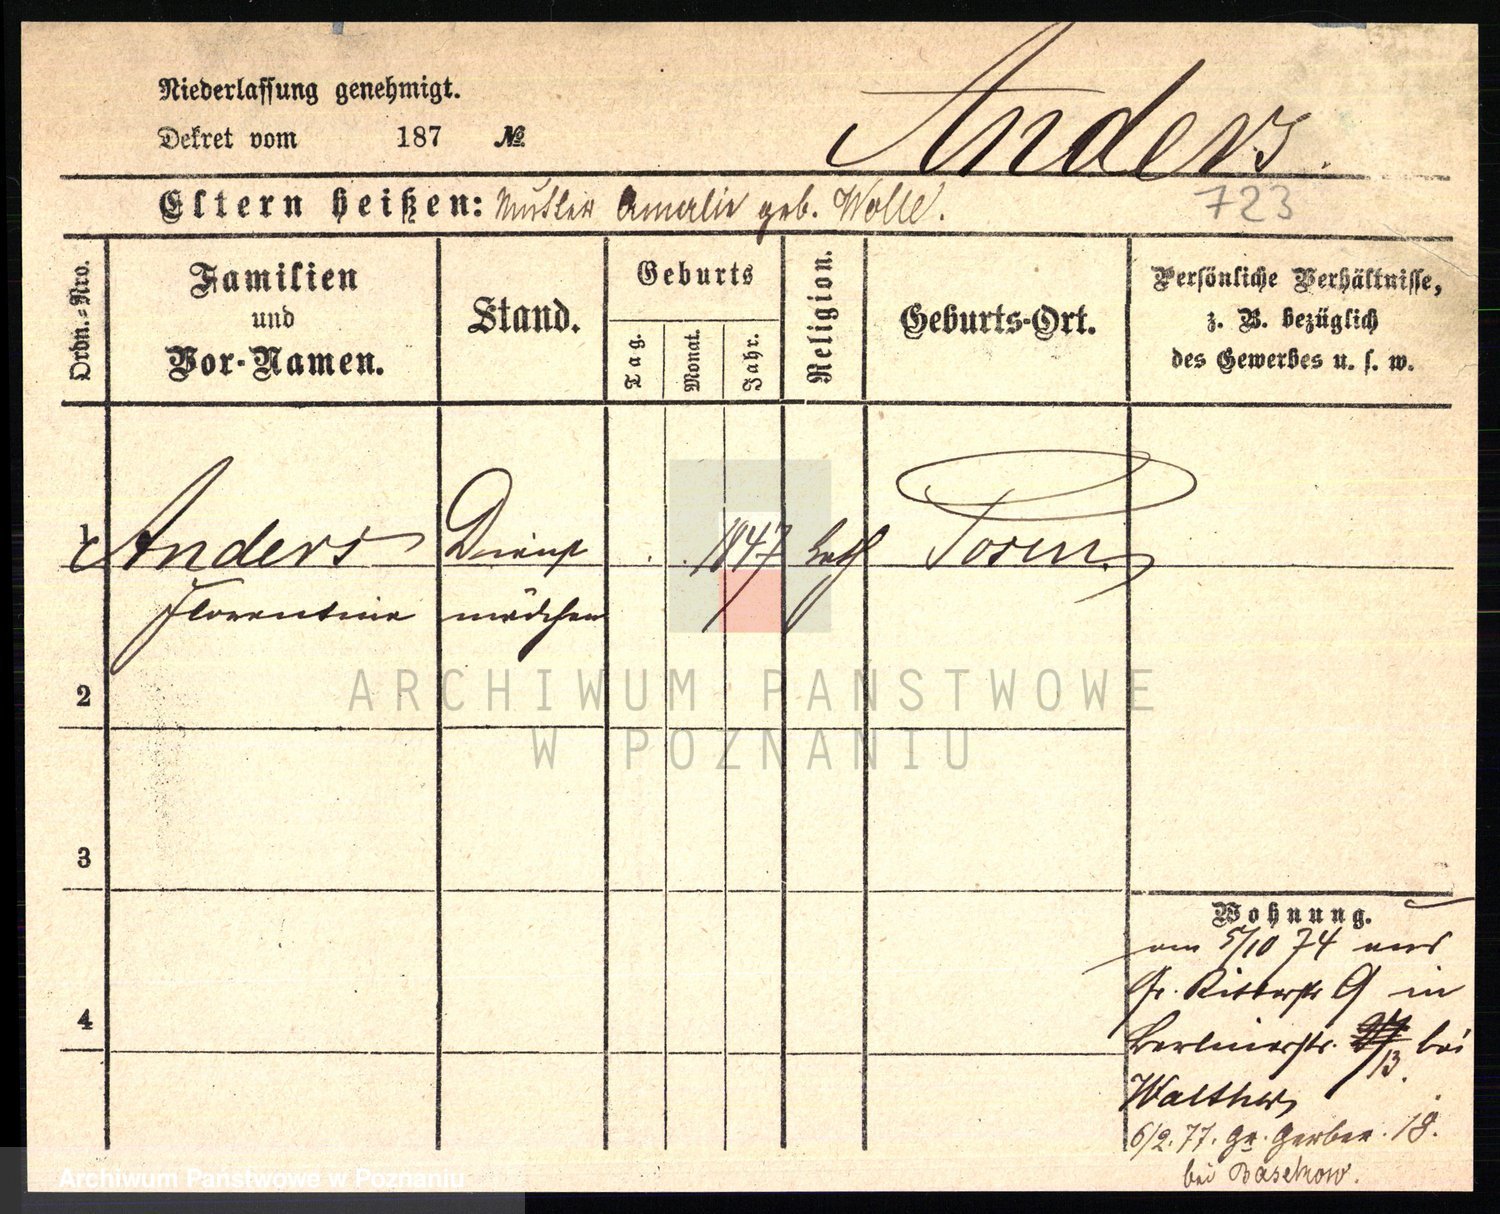 Niederlassung genehmigt.
Dekret vom 187 №
Anders.
723
Eltern heißen: Mutter Amalie geb. Wolle.
Ordn.-Nro.
Familien
und
Vor-Namen.
Stand.
Geburts
Tag.
Monat.
Jahr.
Religion.
Geburts-Ort.
Persönliche Verhältnisse,
z. B. bezüglich
des Gewerbes u. s. w.
1 Anders Dienst 1847 kath Posen.
Florentine mädchen
2
3
4
ARCHIWUM PAŃSTWOWE
W POZNANIU
Wohnung.
am 5/10 74 aus
Gr. Ritterstr 9 in
Berlinerstr. 13. bei
Walther
6/2. 77. Gr. Gerber. 18.
bei Basekow.
Archiwum Państwowe w Poznaniu